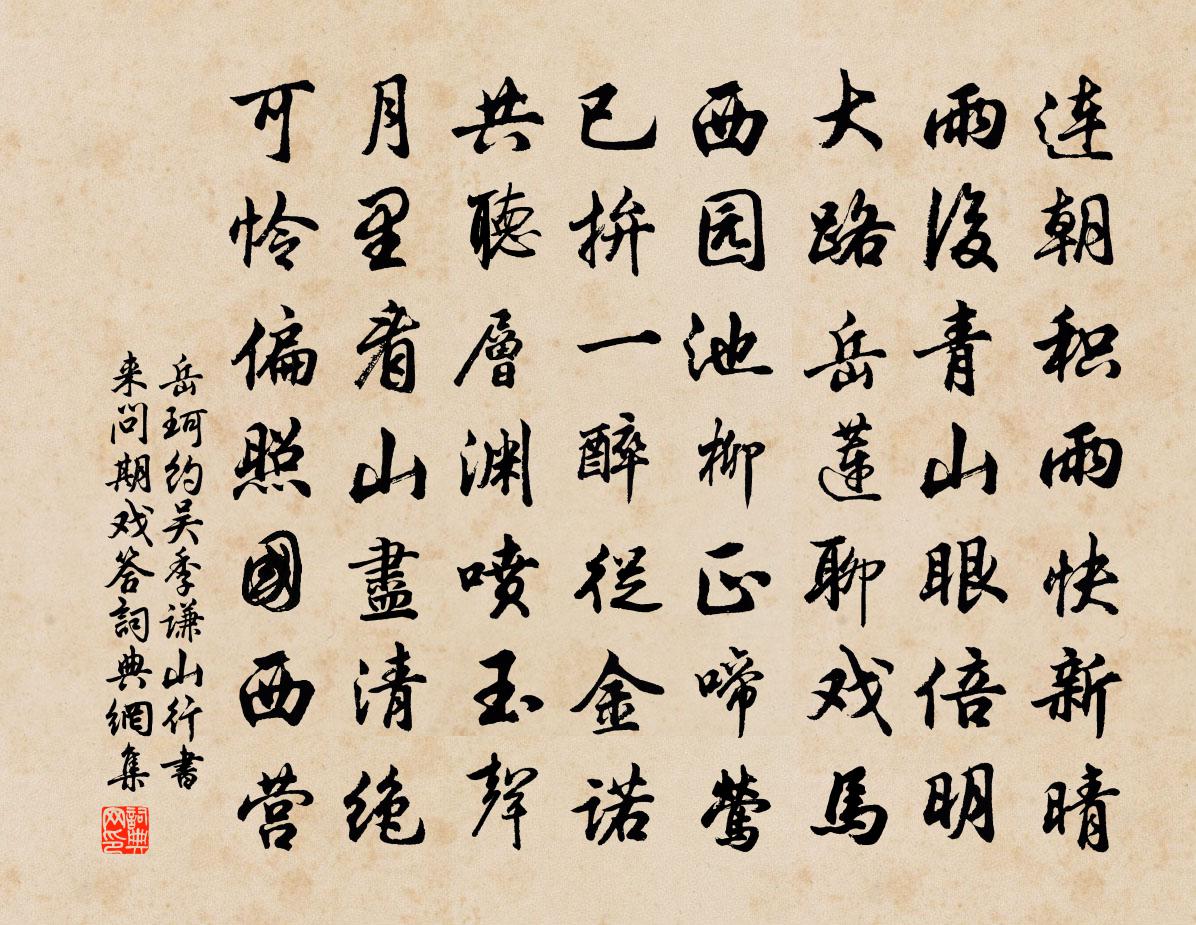 连朝积雨快新晴
雨後青山眼倍明
大路岳蓮聊戏馬
西园池柳正啼鶯
已拚一醉從金诺
共聽層渊喷玉聲
月里看山盡清绝
可怜偏照國西营
岳珂约吴季谦山行書
来問期戏答詞典網集
詞典網印